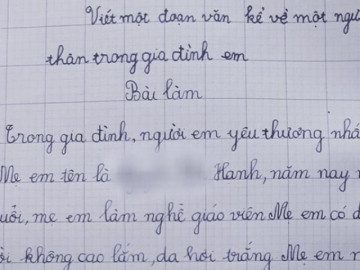 Viết một đoạn văn kể về một
thân trong gia đình em
Bài làm
Trong gia đình, người em yêu thương
Mẹ em tên là Hanh, năm nay
mẹ em làm nghề giáo viên Mẹ em có
không cao lắm, da hơi trắng Mẹ em